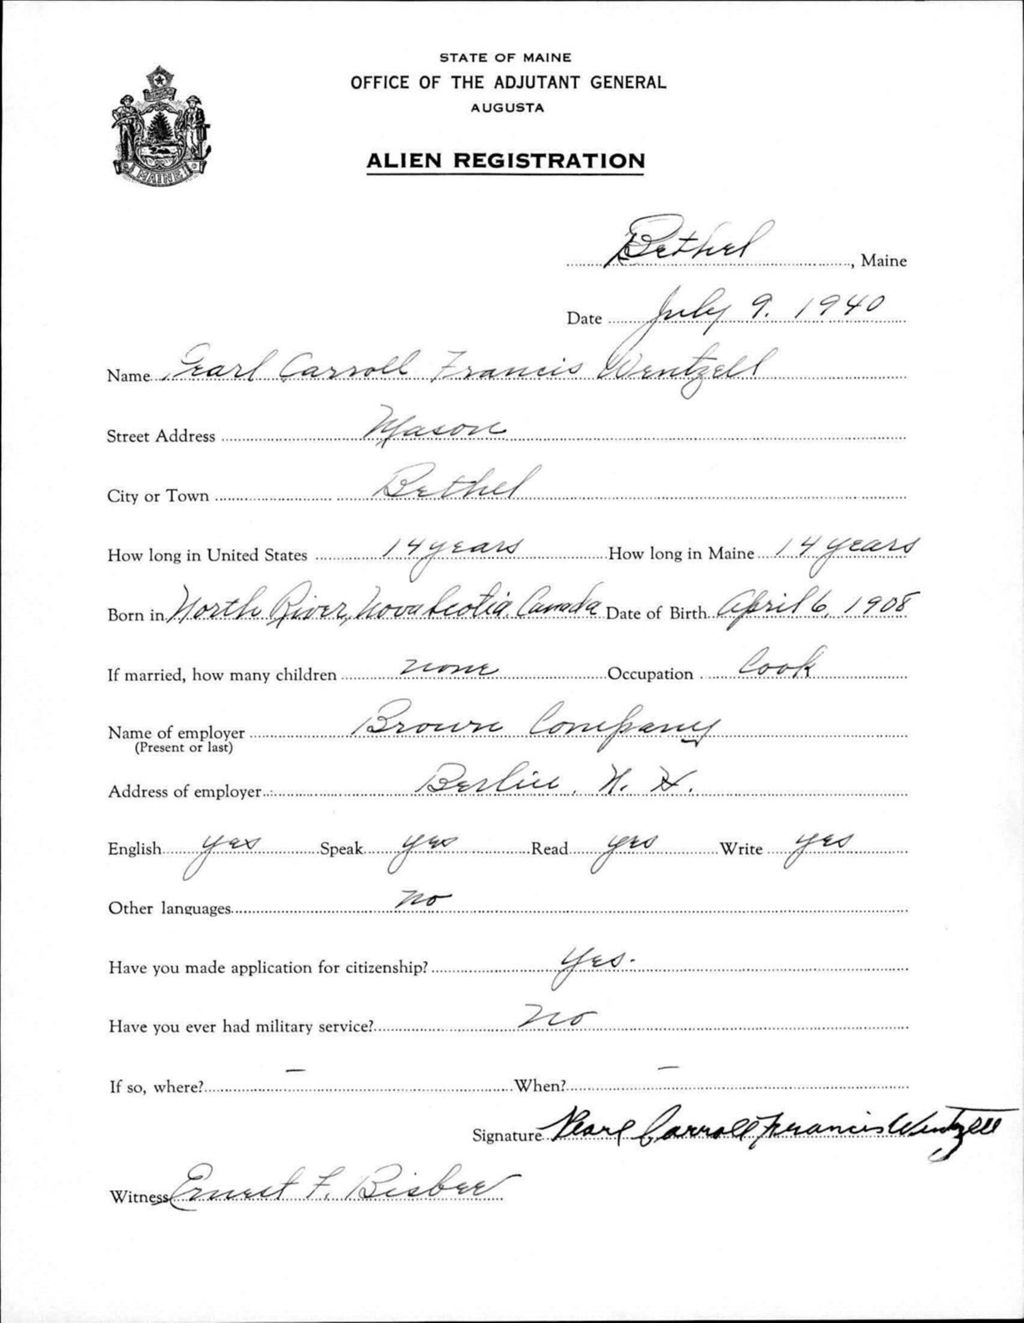 STATE OF MAINE
OFFICE OF THE ADJUTANT GENERAL
AUGUSTA
MAINE
ALIEN REGISTRATION
Bethel, Maine
Date July 9. 1940
Name Pearl Carroll Francis Wentzell
Street Address Mason
City or Town Bethel
How long in United States 14 years How long in Maine 14 years
Born in North River, Nova Scotia, Canada Date of Birth April 6, 1908
If married, how many children none Occupation Cook
Name of employer Brown Company
(Present or last)
Address of employer Berlin, N. H.
English yes Speak yes Read yes Write yes
Other languages no
Have you made application for citizenship? Yes.
Have you ever had military service? no
If so, where? — When? —
Signature Pearl Carroll Francis Wentzell
Witness Ernest F. Bisbee